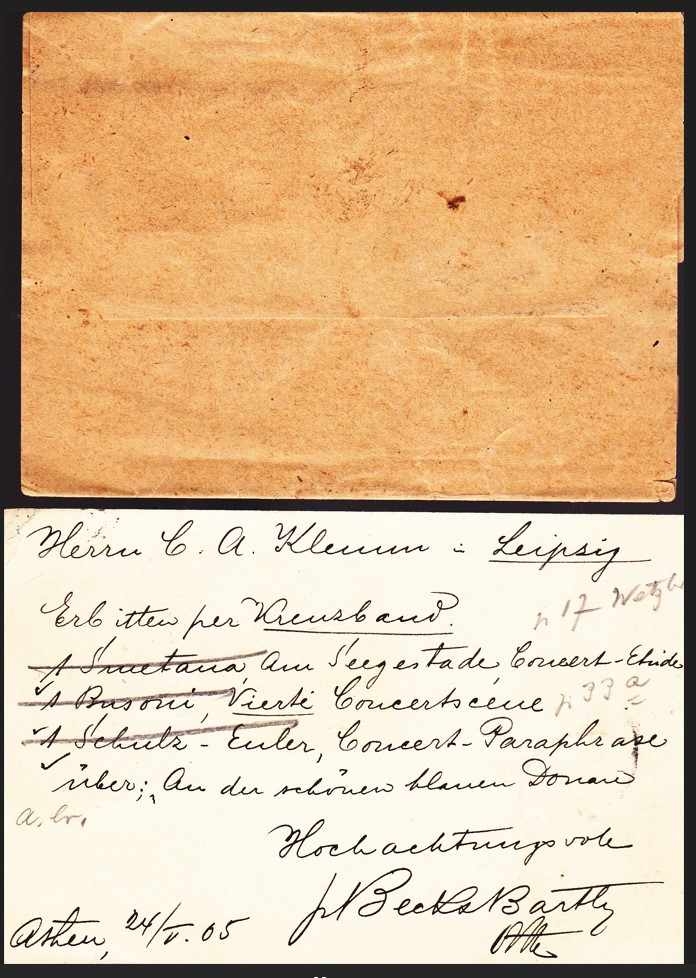 Herrn C. A. Klemm - Leipzig
Erbitten per Kreuzband.
p 17
1 Smetana, Am Seegestade Concert-Etude
1 Busoni, Vierte Concertscene p 33 a
1 Schulz-Euler, Concert-Paraphrase
über: „An der schönen blauen Donau
a. br.
Hochachtungsvoll
Athen, 24/V. 05